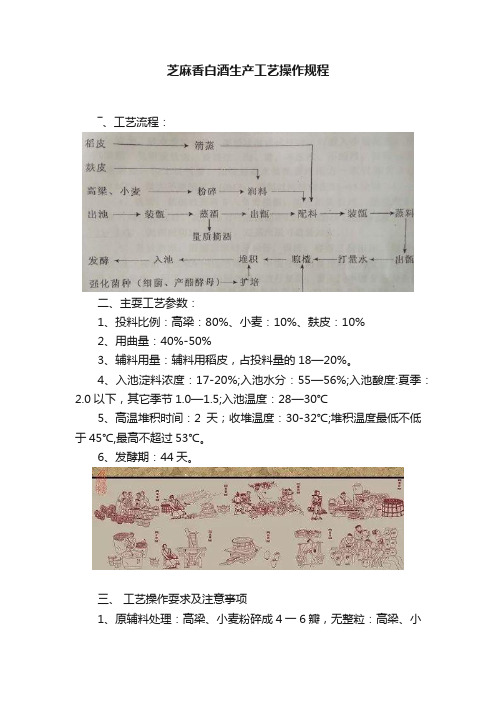 芝麻香白酒生产工艺操作规程
‾、工艺流程：
稻皮 清蒸
麸皮
高粱、小麦 粉碎 润料
出池 装甑 蒸酒 出甑 配料 装甑 蒸料
量质摘酒
发酵 入池 堆积 晾楂 打量水 出甑
强化菌种（细菌、产酯酵母） 扩培
二、主耍工艺参数：
1、投料比例：高梁：80%、小麦：10%、麸皮：10%
2、用曲量：40%-50%
3、辅料用量：辅料用稻皮，占投料量的18—20%。
4、入池淀料浓度：17-20%;入池水分：55—56%;入池酸度:夏季：
2.0以下，其它季节1.0—1.5;入池温度：28—30℃
5、高温堆积时间：2天；收堆温度：30-32℃;堆积温度最低不低
于45℃,最高不超过53℃。
6、发酵期：44天。
三、 工艺操作耍求及注意亊项
1、原辅料处理：高梁、小麦粉碎成4一6瓣，无整粒：高梁、小